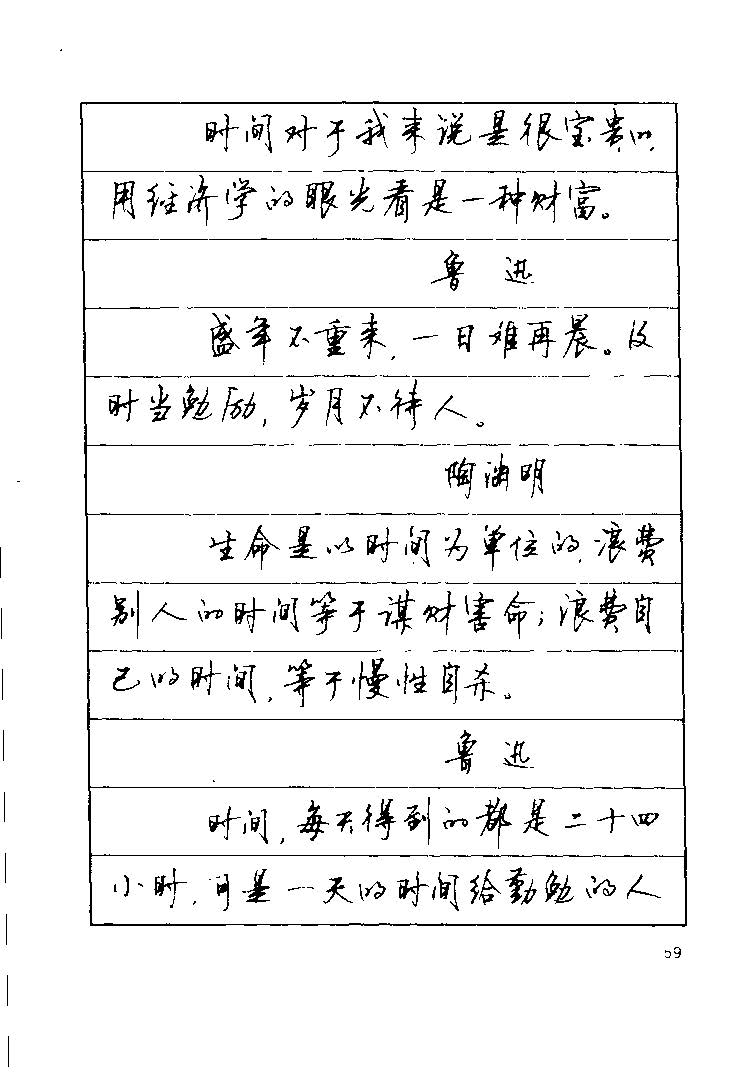 时间对于我来说是很宝贵的,
用经济学的眼光看是一种财富。
鲁迅
盛年不重来,一日难再晨。及
时当勉励,岁月不待人。
陶渊明
生命是以时间为单位的,浪费
别人的时间等于谋财害命;浪费自
己的时间,等于慢性自杀。
鲁迅
时间,每天得到的都是二十四
小时,可是一天的时间给勤勉的人
59